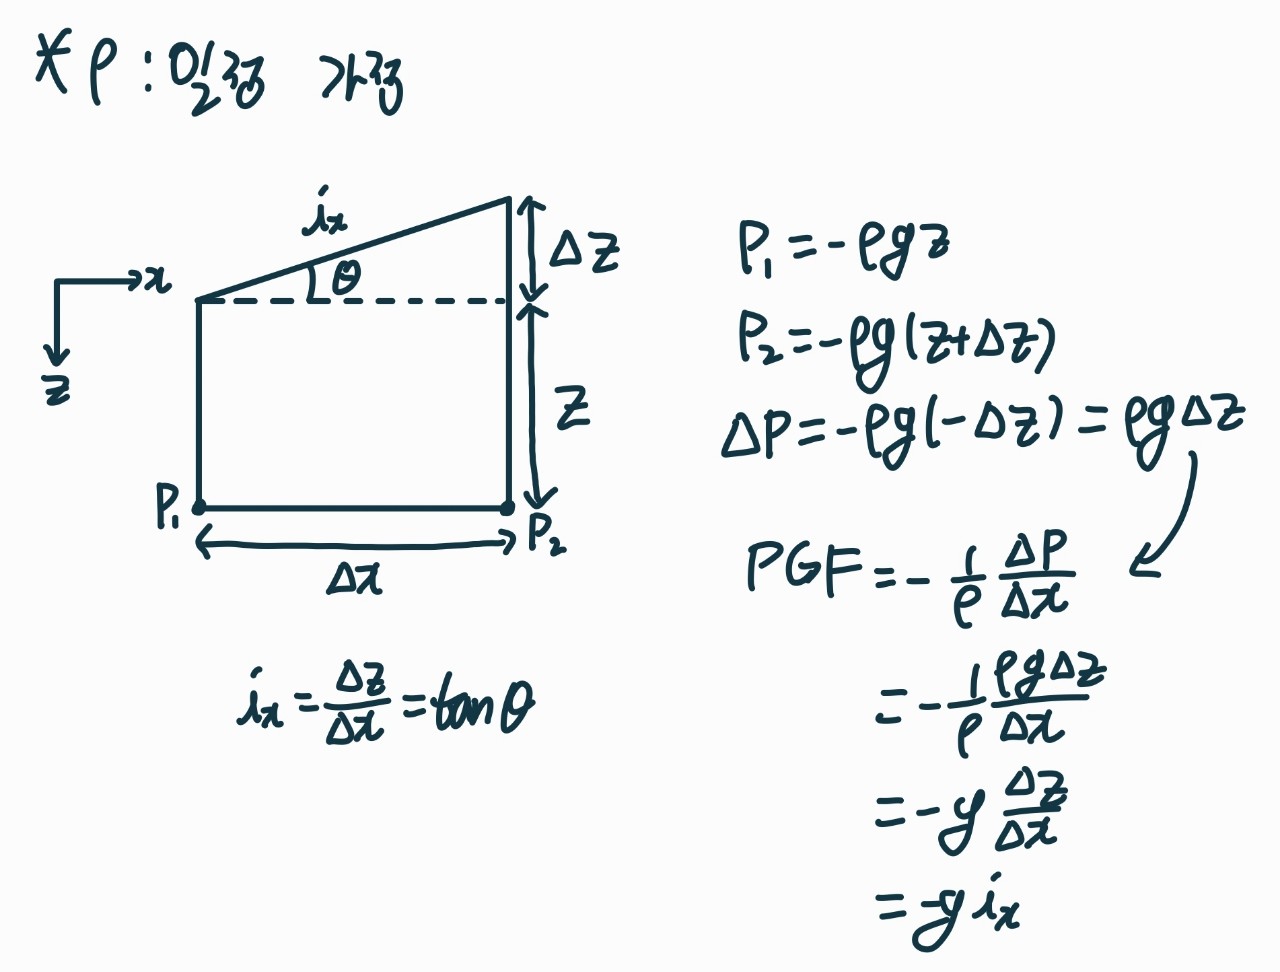 * ρ : 일정 가정
iₓ
θ
Δz
x
z
z
P₁
P₂
Δx
iₓ = Δz/Δx = tan θ
P₁ = -ρgz
P₂ = -ρg(z+Δz)
ΔP = -ρg(-Δz) = ρgΔz
PGF = - 1/ρ ΔP/Δx
= - 1/ρ ρgΔz/Δx
= -g Δz/Δx
= -g iₓ